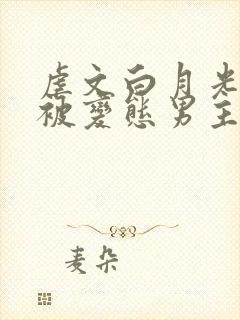 虐文白月光
被變態男主
麦朵